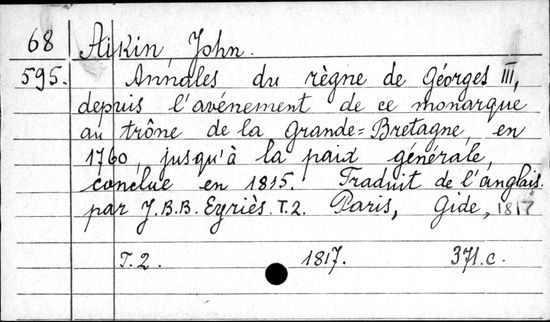 68 Aikin John.
595. Annales du règne de Georges III,
depuis l'avénement de ce monarque
au trône de la Grande=Bretagne, en
1760, jusqu'à la paix générale,
conclue en 1815. Traduit de l'anglais.
par J.B.B. Eyriès. T.2. Paris, Gide, 1817
T.2. 1817. 371.c.